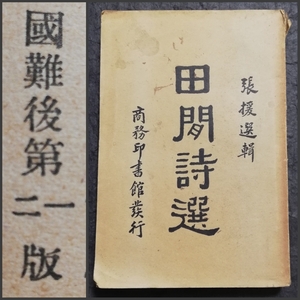 國難後第
二一
版
張援選輯
田閒詩選
商務印書館發行